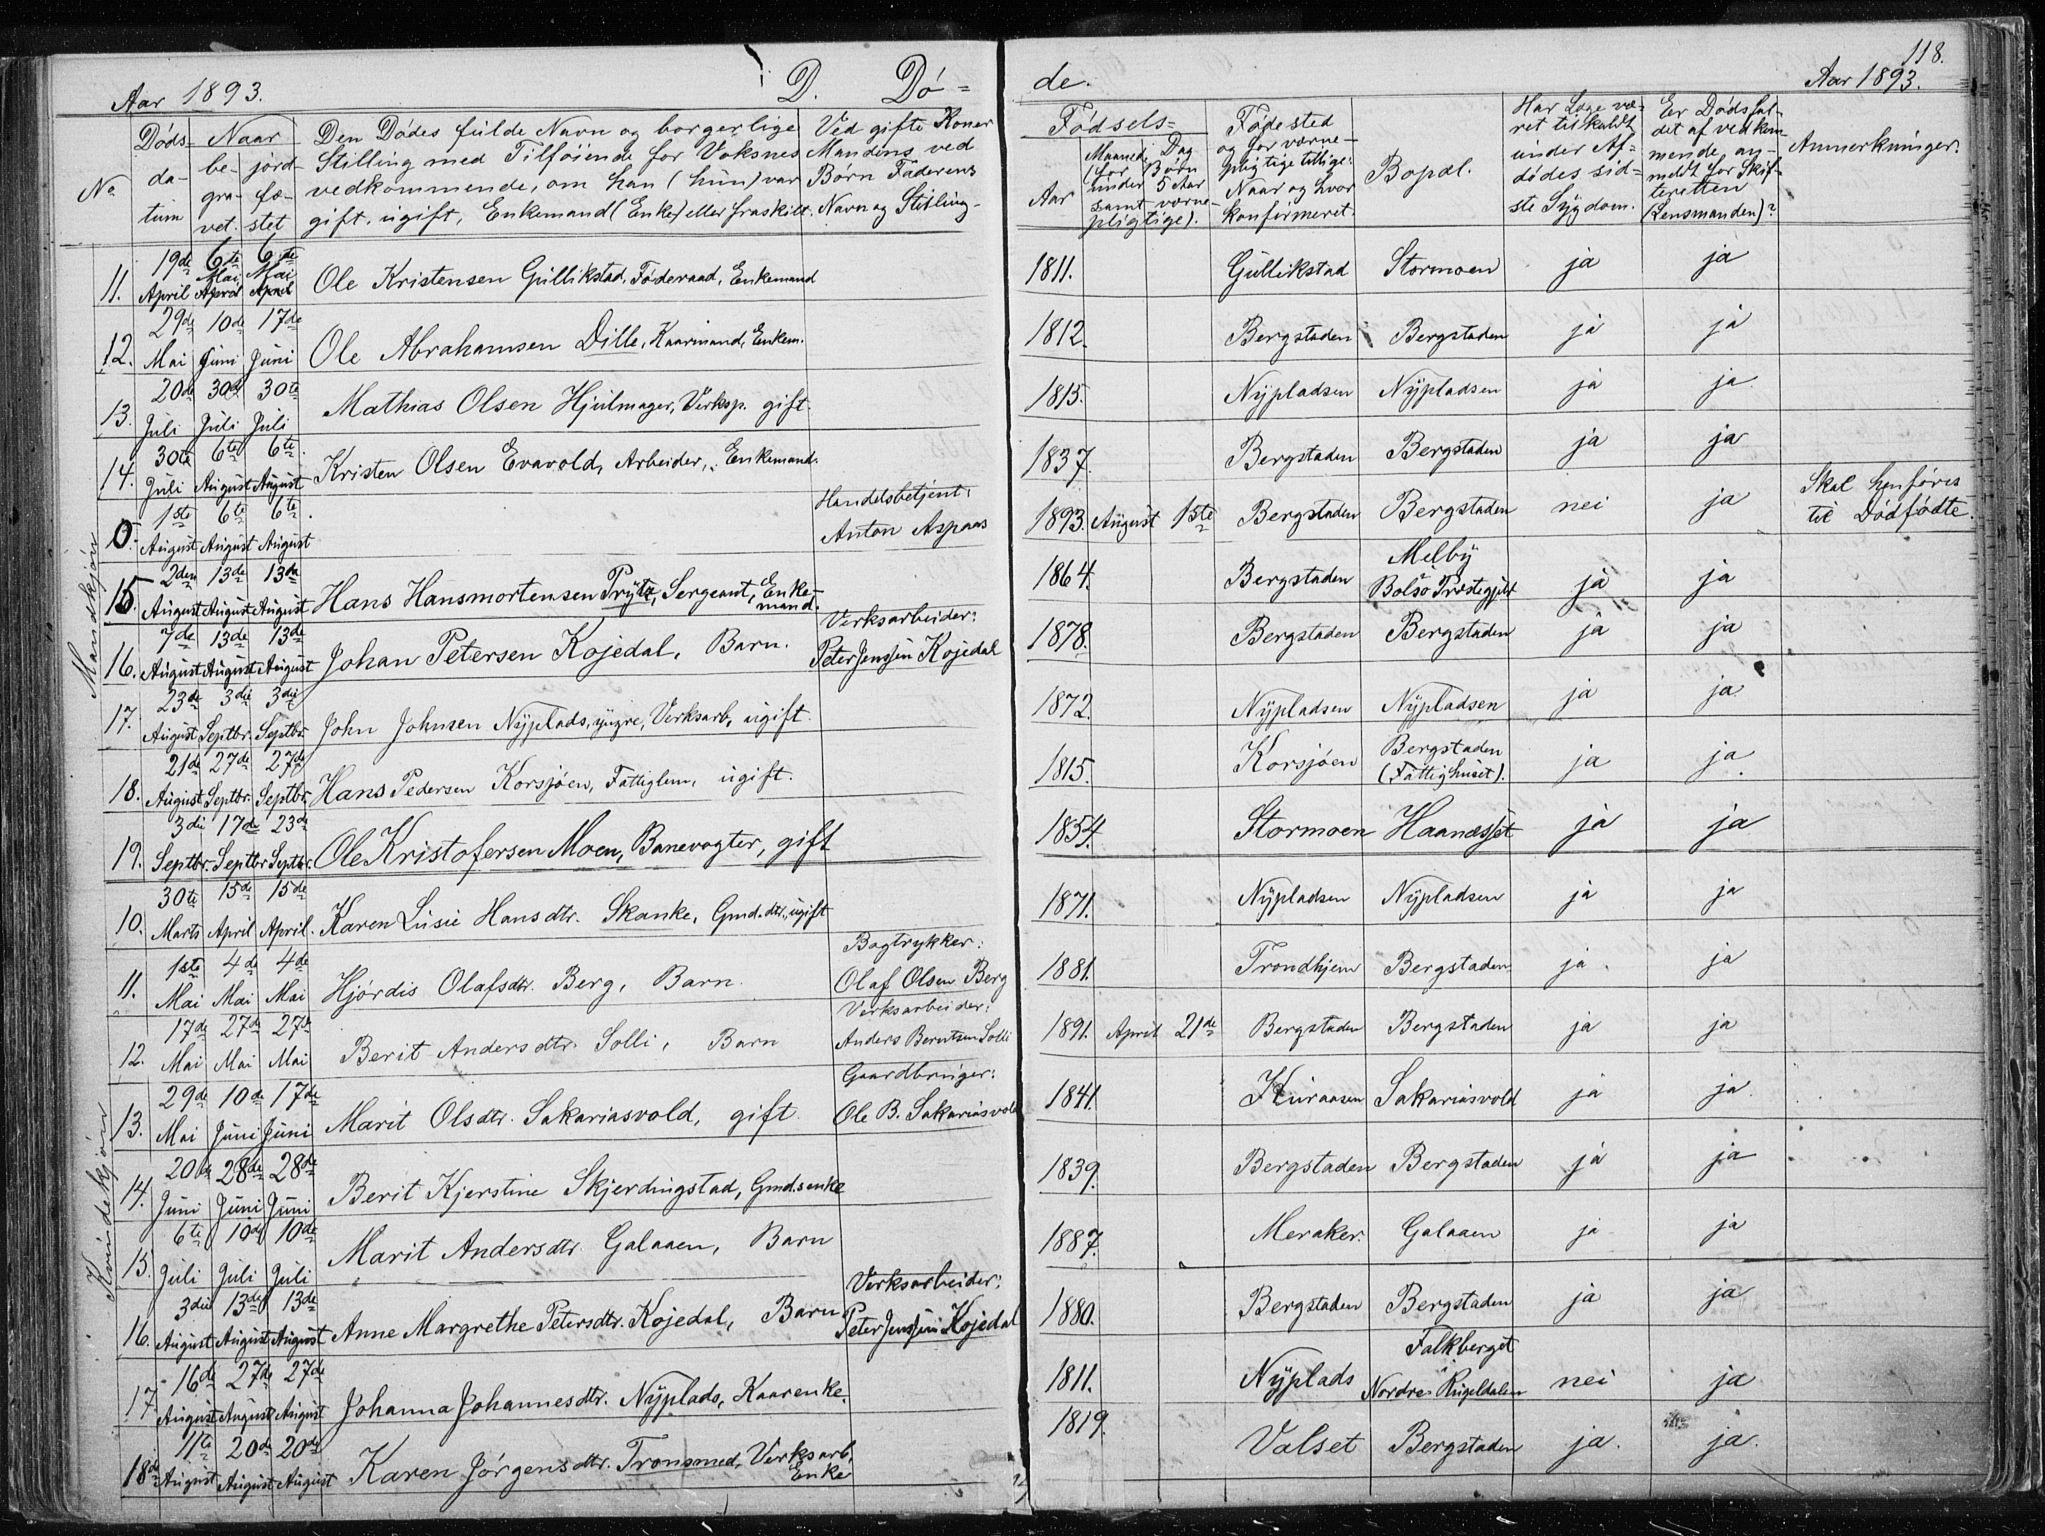 118.
Aar 1893. D. Dö = de. Aar 1893.
No
Döds- da- tum
Naar be- gra- vet. jord- fæ- stet
Den Dödes fulde Navn og borgerlige
Stilling med Tilföiende for Voksnes
vedkommende, om han (hun) var
gift, ugift, Enkemand (Enke) eller fraskilt.
Ved gifte Koner
Mandens, ved
Börn Faderens
Navn og Stilling.
Födsels=
Aar
Maaned, Dag
(for Börn
under 5 Aar
samt værne-
pligtige).
Födested
og for værne-
pligtige tillige:
Naar og hvor
konfirmeret.
Bopæl.
Har Læge væ-
ret tilkaldt
under Af-
dödes sid-
ste Sygdom.
Er Dödsfal-
det af vedkom-
mende an-
meldt for Skif-
teretten
(Lensmanden)?
Anmerkninger.
Mandkjön
11. 19de April 6te Mai April 6te Mai April Ole Kristensen Gullikstad, Föderaad, Enkemand 1811. Gullikstad Stormoen ja ja
12. 29de Mai 10de Juni 17de Juni Ole Abrahamsen Dille, Kaarmand, Enkem. 1812. Bergstaden Bergstaden ja ja
13. 20de Juli 30te Juli 30te Juli Mathias Olsen Hjulmager, Verksp. gift. 1815. Nypladsen Nypladsen ja ja
14. 30te Juli 6te August 6te August Kristen Olsen Evavold, Arbeider, Enkemand. 1837. Bergstaden Bergstaden ja ja
0. 1ste August 6te August 6te August Handelsbetjent: Anton Aspaas 1893. August 1ste Bergstaden Bergstaden nei ja Skal henföres til Dödfödte.
15. 2den August 13de August 13de August Hans Hansmortensen Prytz, Sergeant, Enke- mand. 1864. Bergstaden Melby Bolsö Præstegjæld ja ja
16. 7de August 13de August 13de August Johan Petersen Kojedal, Barn. Verksarbeider: Peter Jenssen Kojedal 1878. Bergstaden Bergstaden ja ja
17. 23de August 3die Septbr. 3die Septbr. John Johnsen Nyplads, yngre, Verksarb, ugift. 1872. Nypladsen Nypladsen ja ja
18. 21de August 27de Septbr. 27de Septbr. Hans Pedersen Korsjöen, Fattiglem, ugift. 1815. Korsjöen Bergstaden (Fattighuset). ja ja
19. 3die Septbr. 17de Septbr 23de Septbr. Ole Kristofersen Moen, Banevogter, gift 1854. Stormoen Haanæsset ja ja
Kvindekjön
10. 30te Marts 15de April 15de April. Karen Lusie Hansdtr. Skanke, Gmd.dtr., ugift 1871. Nypladsen Nypladsen ja ja
11. 1ste Mai 4de Mai 4de Mai Hjördis Olafsdtr. Berg, Barn. Bogtrykker: Olaf Olsen Berg 1881. Trondhjem Bergstaden ja ja
12. 17de Mai 27de Mai 27de Mai Berit Andersdtr. Solli, Barn Verksarbeider: Anders Berntsen Solli 1891. April 21de Bergstaden Bergstaden ja ja
13. 29de Mai 10de Juni 17de Juni Marit Olsdtr. Sakariasvold, gift Gaardbruger: Ole B. Sakariasvold 1841. Kuraasen Sakariasvold ja ja
14. 20de Juni 28de Juni 28de Juni Berit Kjerstine Skjerdingstad, Gmd.senke 1839. Bergstaden Bergstaden ja ja
15. 6te Juli 10de Juli 10de Juli Marit Andersdtr. Galaaen, Barn 1887. Meraker. Galaaen ja ja
16. 3die August 13de August 13de August Anne Margrethe Petersdtr. Kojedal, Barn Verksarbeider: Peter Jenssen Kojedal 1880. Bergstaden Bergstaden ja ja
17. 16de August 27de August 27de August Johanna Johannesdtr. Nyplads, Kaarenke. 1811. Nyplads Falkberget i Nordre Rugeldalen nei ja
18de 11te August 20de August 20de August Karen Jörgensdtr. Tronsmed, Verksarb. Enke 1819. Valset Bergstaden ja. ja.